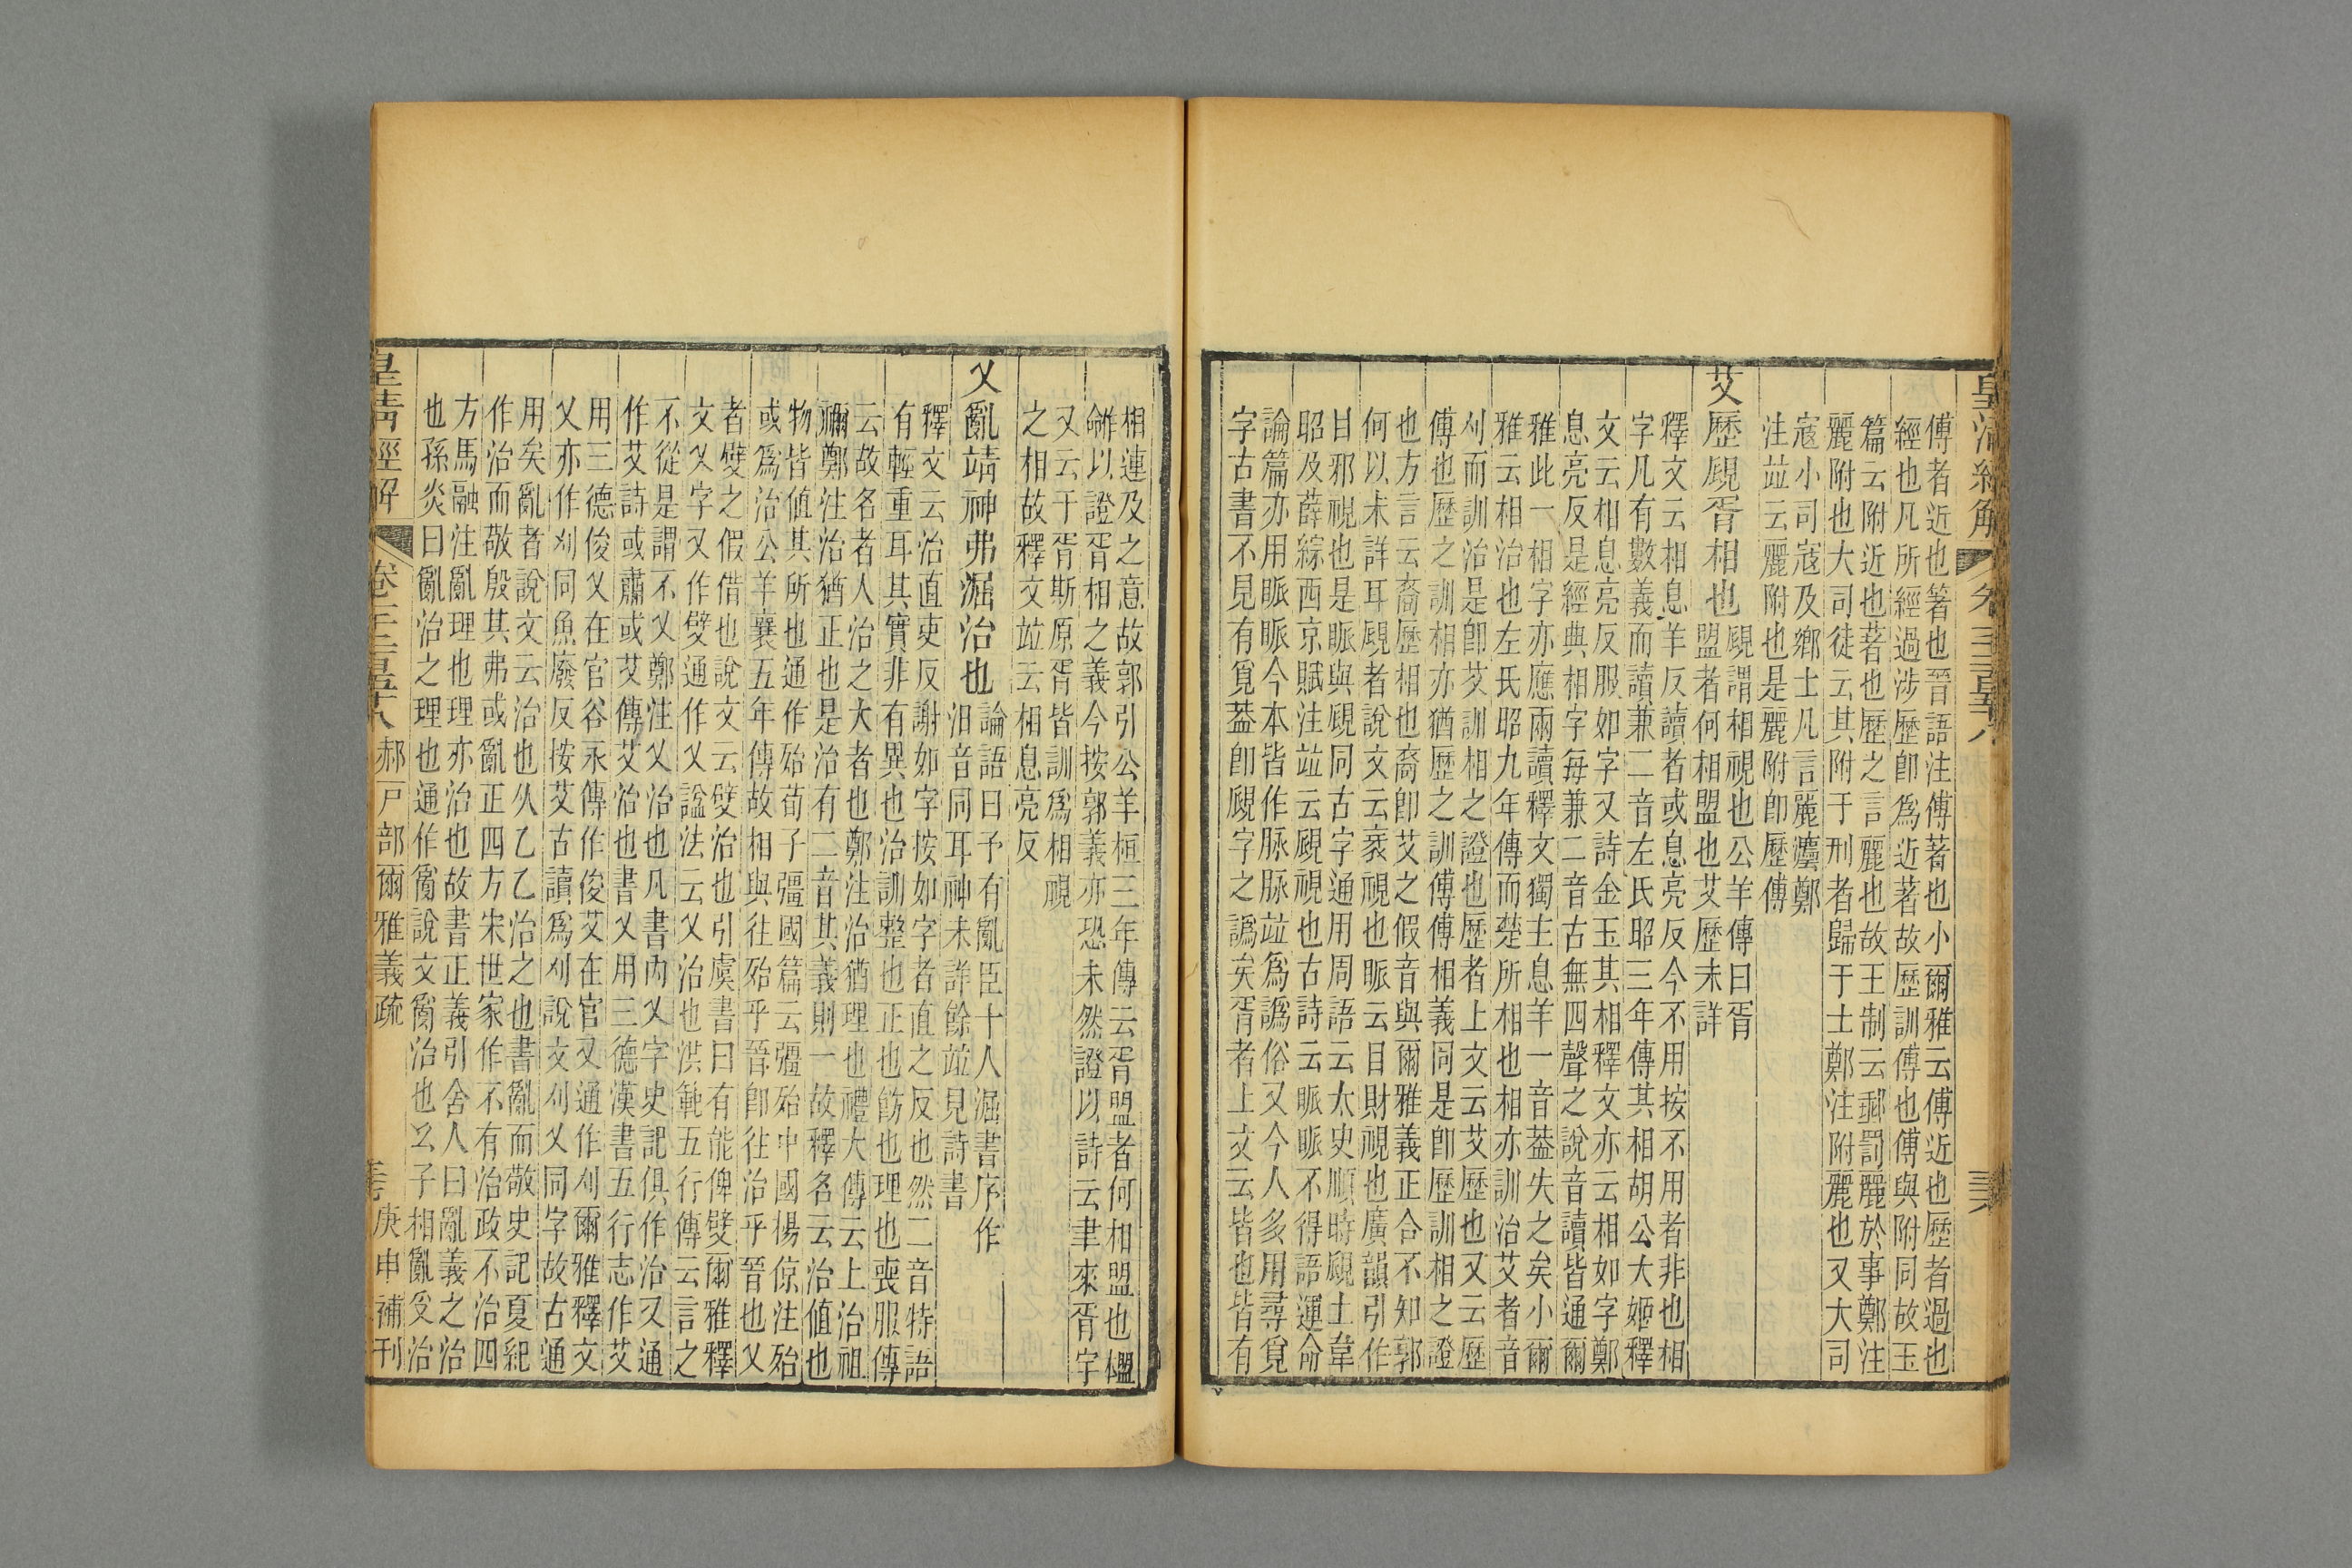 傅者近也箸也晉語注傅著也小爾雅云傅近也歷者過也
經也凡所經過涉歷卽爲近著故歷訓傅也傅與附同故玉
篇云附近也著也歷之言麗也故王制云郵罰麗於事鄭注
麗附也大司徒云其附于刑者歸于士鄭注附麗也又大司
寇小司寇及鄉士凡言麗灋鄭
注竝云麗附也是麗附卽歷傅
艾歷覛胥相也
覛謂相視也公羊傳曰胥
盟者何相盟也艾歷未詳
釋文云相息羊反讀者或息亮反今不用按不用者非也相
字凡有數義而讀兼二音左氏昭三年傳其相胡公大姬釋
文云相息亮反服如字又詩金玉其相釋文亦云相如字鄭
息亮反是經典相字每兼二音古無四聲之說音讀皆通爾
雅此一相字亦應兩讀釋文獨主息羊一音葢失之矣小爾
雅云相治也左氏昭九年傳而楚所相也相亦訓治艾者音
刈而訓治是卽艾訓相之證也歷者上文云艾歷也又云歷
傅也歷之訓相亦猶歷之訓傅傅相義同是卽歷訓相之證
也方言云裔歷相也裔卽艾之假音與爾雅義正合不知郭
何以未詳耳覛者說文云衺視也䀎云目財視也廣韻引作
目邪視也是䀎與覛同古字通用周語云太史順時覛土韋
昭及薛綜西京賦注竝云覛視也古詩云䀎䀎不得語運命
論篇亦用䀎䀎今本皆作脈脈竝爲譌俗又今人多用尋覓
字古書不見有覓葢卽覛字之譌矣胥者上文云皆也皆有
皇清經解
郝戶部爾雅義疏
相連及之意故郭引公羊桓三年傳云胥盟者何相盟也㰚
雖以證胥相之義今按郭義亦恐未然證以詩云聿來胥字
又云于胥斯原胥皆訓爲相視
之相故釋文竝云相息亮反
乂亂靖神弗淈治也
論語曰予有亂臣十人淈書序作
汩音同耳神未詳餘竝見詩書
釋文云治直吏反謝如字按如字者直之反也然二音特語
有輕重耳其實非有異也治訓整也正也飭也理也喪服傳
云故名者人治之大者也鄭注治猶理也禮大傳云上治祖
禰鄭注治猶正也是治有二音其義則一故釋名云治値也
物皆値其所也通作殆荀子彊國篇云彊殆中國楊倞注殆
或爲治公羊襄五年傳故相與往殆乎晉卽往治乎晉也乂
者嬖之假借也說文云嬖治也引虞書曰有能俾嬖爾雅釋
文乂字又作嬖通作乂諡法云乂治也洪範五行傳云言之
不從是謂不乂鄭注乂治也凡書內乂字史記俱作治又通
作艾詩或肅或艾傳艾治也書乂用三德漢書五行志作艾
用三德俊乂在官谷永傳作俊艾在官又通作刈爾雅釋文
乂亦作刈同魚廢反按艾古讀爲刈說文刈乂同字故古通
用矣亂者說文云治也从乙乙治之也書亂而敬史記夏紀
作治而敬殷其弗或亂正四方宋世家作不有治政不治四
方馬融注亂理也理亦治也故書正義引舍人曰亂義之治
也孫炎曰亂治之理也通作𤔔說文𤔔治也幺子相亂𠬪治
皇淸經解
郝戶部爾雅義疏
庚申補刊